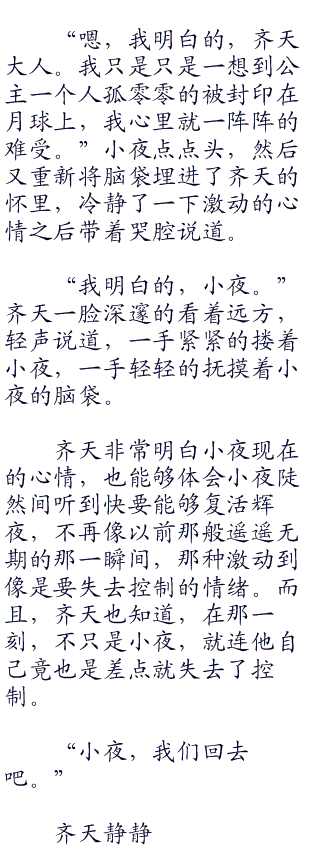 “嗯，我明白的，齐天
大人。我只是只是一想到公
主一个人孤零零的被封印在
月球上，我心里就一阵阵的
难受。”小夜点点头，然后
又重新将脑袋埋进了齐天的
怀里，冷静了一下激动的心
情之后带着哭腔说道。
“我明白的，小夜。”
齐天一脸深邃的看着远方，
轻声说道，一手紧紧的搂着
小夜，一手轻轻的抚摸着小
夜的脑袋。
齐天非常明白小夜现在
的心情，也能够体会小夜陡
然间听到快要能够复活辉
夜，不再像以前那般遥遥无
期的那一瞬间，那种激动到
像是要失去控制的情绪。而
且，齐天也知道，在那一
刻，不只是小夜，就连他自
己竟也是差点就失去了控
制。
“小夜，我们回去
吧。”
齐天静静